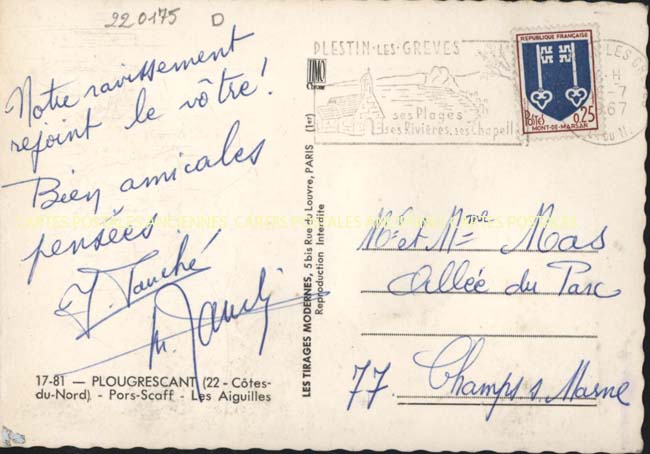 220175 D
Notre ravissement
rejoint le vôtre !
Bien amicales
pensées.
CARTES POSTALES ANCIENNES
J. Tauché
17-81 — PLOUGRESCANT (22 - Côtes-
du-Nord) - Pors-Scaff - Les Aiguilles
LES TIRAGES MODERNES, 5 bis Rue du Louvre, PARIS (1er)
Reproduction Interdite
PLESTIN-LES-GREVES
ses Plages
ses Rivières, ses Chapell
REPUBLIQUE FRANÇAISE
Postes 0,25
MONT-DE-MARSAN
Mr et Mme Mas
Allée du Parc
77 Champs s Marne